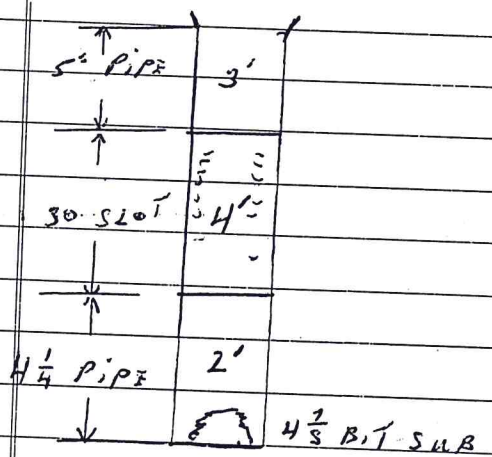 5" PipE
3'
30 SLOT
4'
4 1/4 PipE
2'
4 7/8 BiT SUB